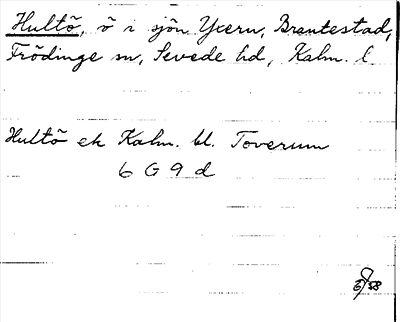 Hultö, ö i sjön Yxern, Brantestad,
Frödinge sn, Sevede hd, Kalm. l.
Hultö ek Kalm. bl. Toverum
6 G 9 d